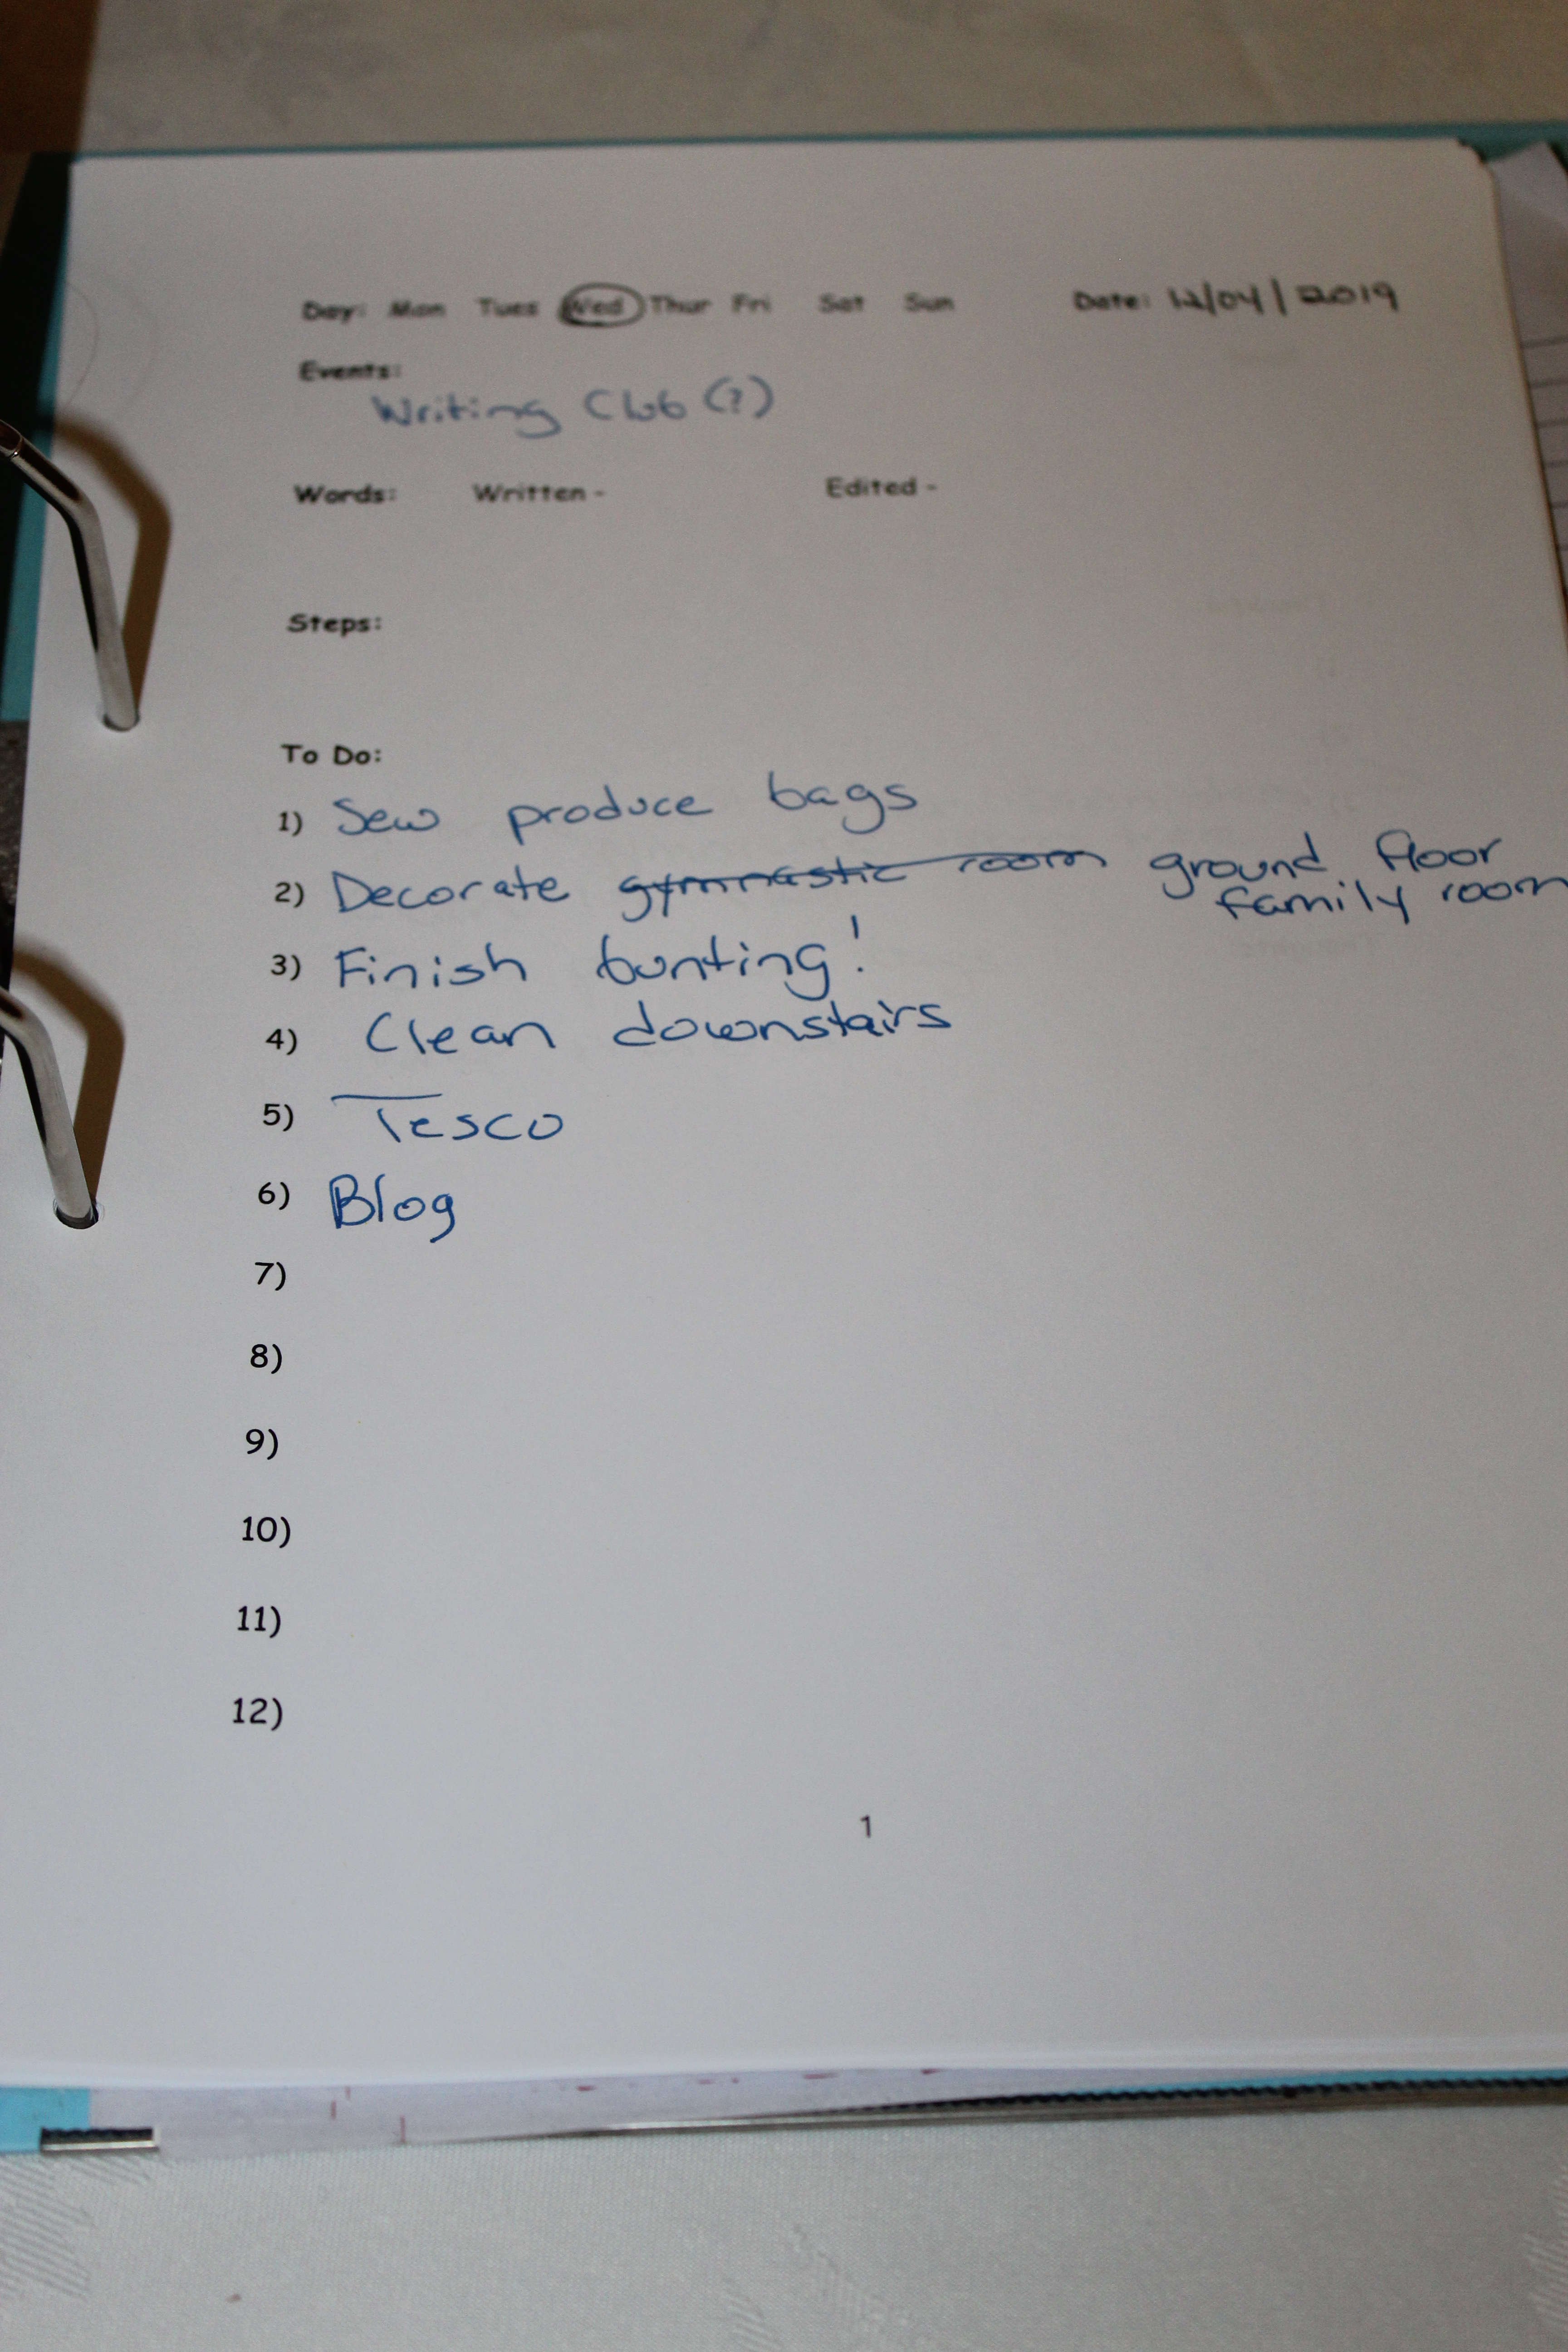 Day: Mon Tues Wed Thur Fri Sat Sun Date: 12/04/2019
Events:
Writing Club (?)
Words: Written - Edited -
Steps:
To Do:
1) Sew produce bags
2) Decorate gymnastic room ground floor
family room
3) Finish bunting!
4) Clean downstairs
5) Tesco
6) Blog
7)
8)
9)
10)
11)
12)
1